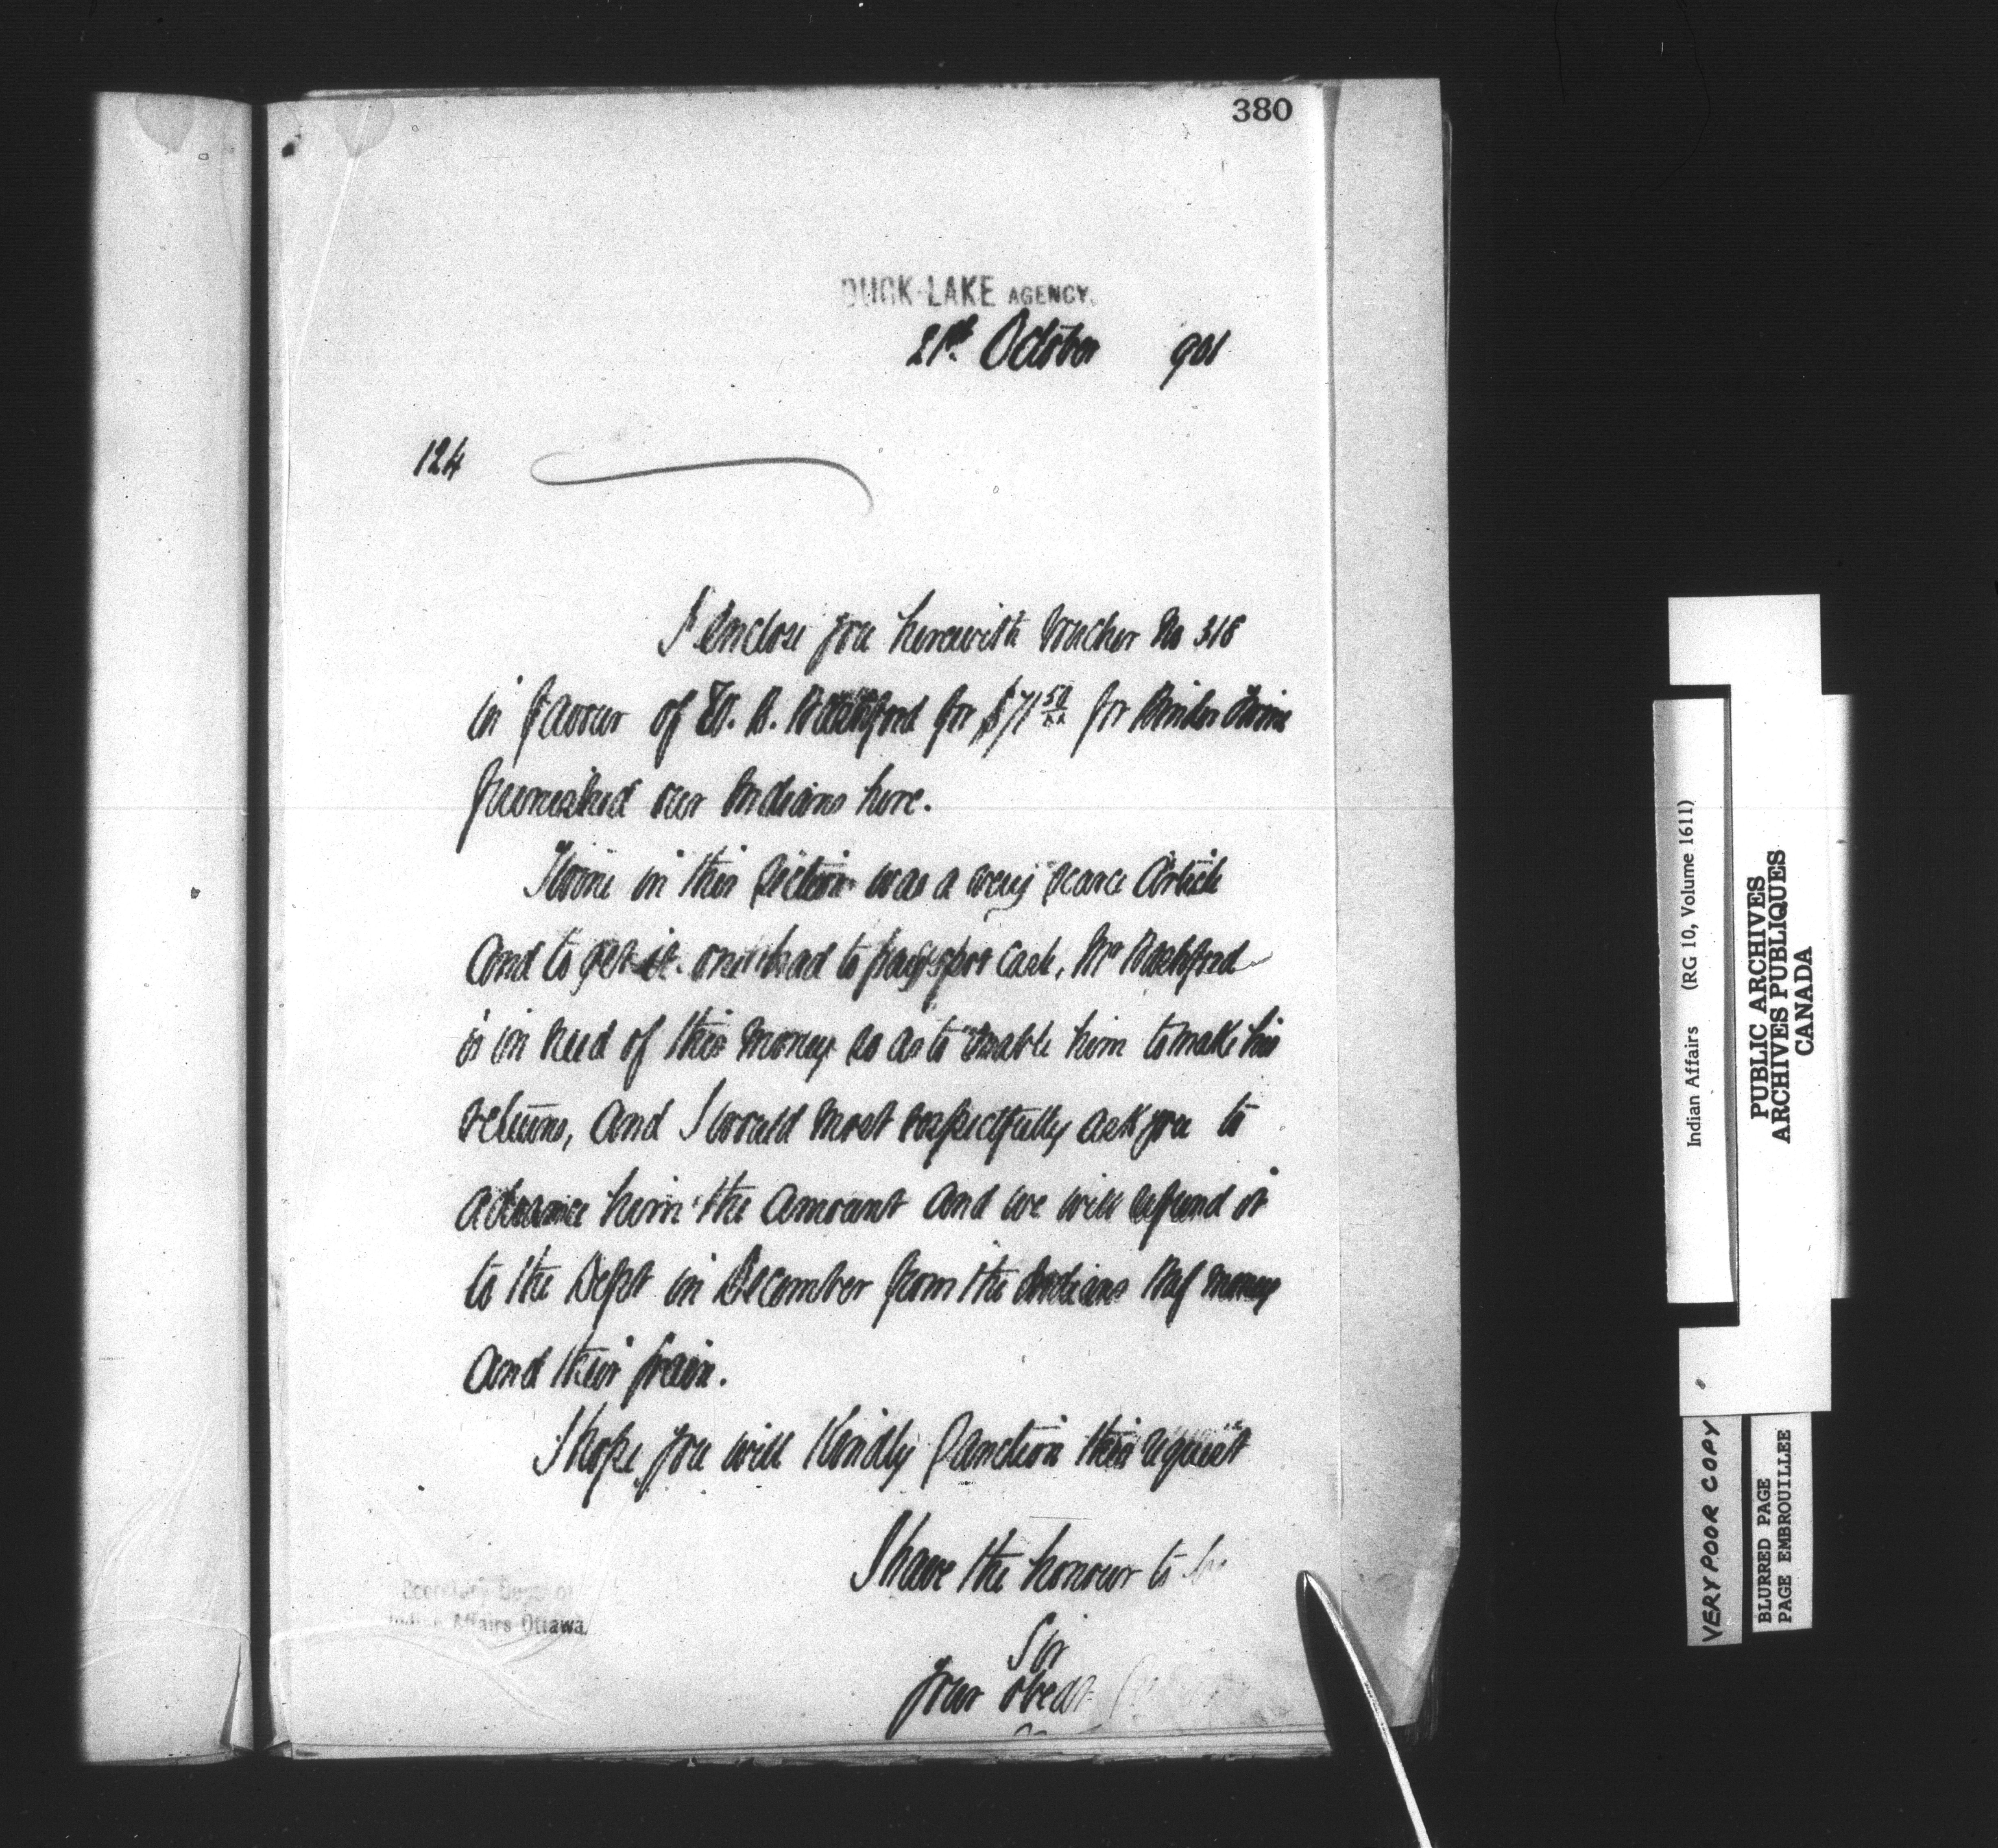 380
DUCK LAKE AGENCY.
21st October 901
124
I enclose you herewith Voucher No 318
in favour of W. B. Bashford for $71 50/xx for Binder Twine
furnished our Indians here.
Twine in this Section was a very scarce Article
And to get it one had to pay spot Cash, Mr Bashford
is in need of this money so as to Enable him to make his
returns, And I would most respectfully ask you to
advance him the Amount And we will refund it
to the Dept in December from the Indians Beef money
And their grain.
I hope you will Kindly Sanction this request
I have the honour to be
Sir
Your obedt
Secretary Dept of
Indian Affairs Ottawa.
Indian Affairs (RG 10, Volume 1611)
PUBLIC ARCHIVES
ARCHIVES PUBLIQUES
CANADA
VERY POOR COPY
BLURRED PAGE
PAGE EMBROUILLEE